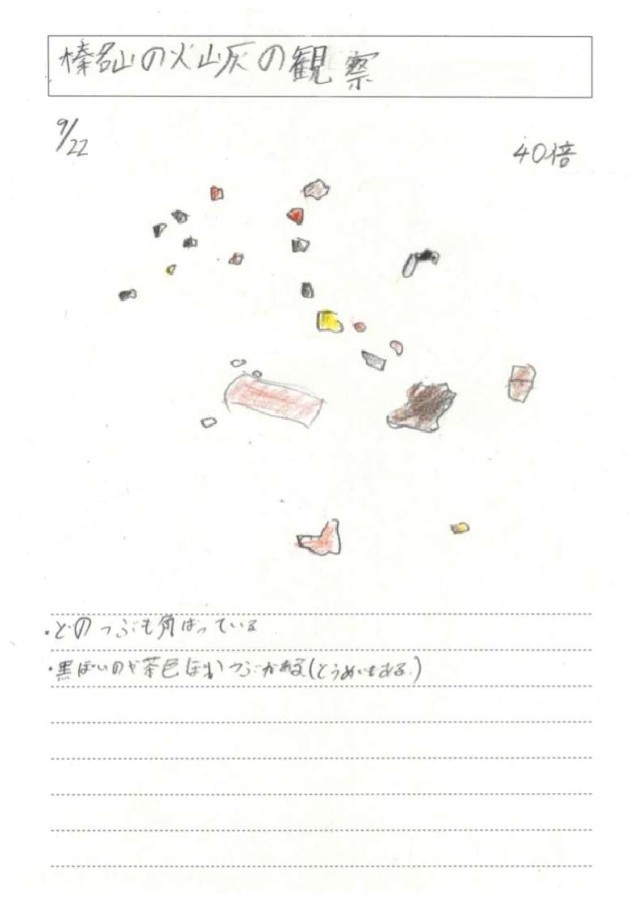 榛名山の火山灰の観察
9/22
40倍
・どのつぶも角ばっている
・黒ぽいのや茶色ぽいつぶがある(とうめいもある)